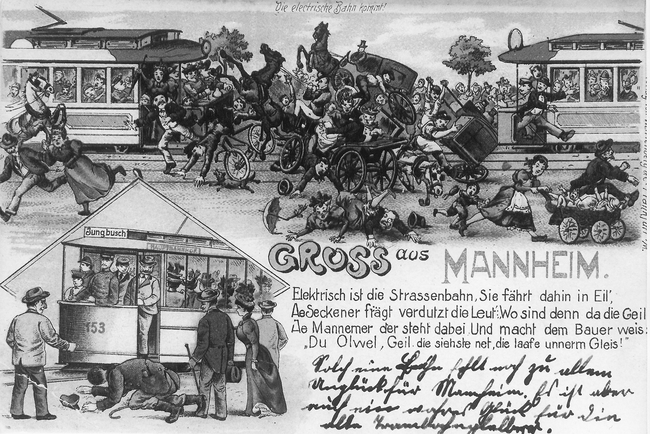 Die electrische Bahn kommt!
Jungbusch
153
GRUSS aus MANNHEIM.
Elektrisch ist die Strassenbahn, Sie fährt dahin in Eil',
Ae Seckener frägt verdutzt die Leut': Wo sind denn da die Geil
Ae Mannemer der steht dabei Und macht dem Bauer weis:
„Du Olwel, Geil die siehste net, die laafe unnerm Gleis!"
Solch eine Bahn fehlt noch zu allem
Unglück für Mannheim. Es ist aber
auch ein wahres Glück für die
alte